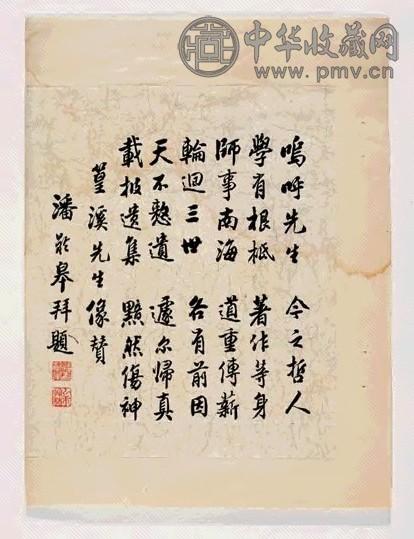 中华收藏网
www.pmv.cn
嗚呼先生 今之哲人
學有根柢 著作等身
師事南海 道重傳薪
輪迴三世 各有前因
天不憖遺 遽尔歸真
載披遺集 黯然傷神
篁溪先生像贊
潘齡皋拜題